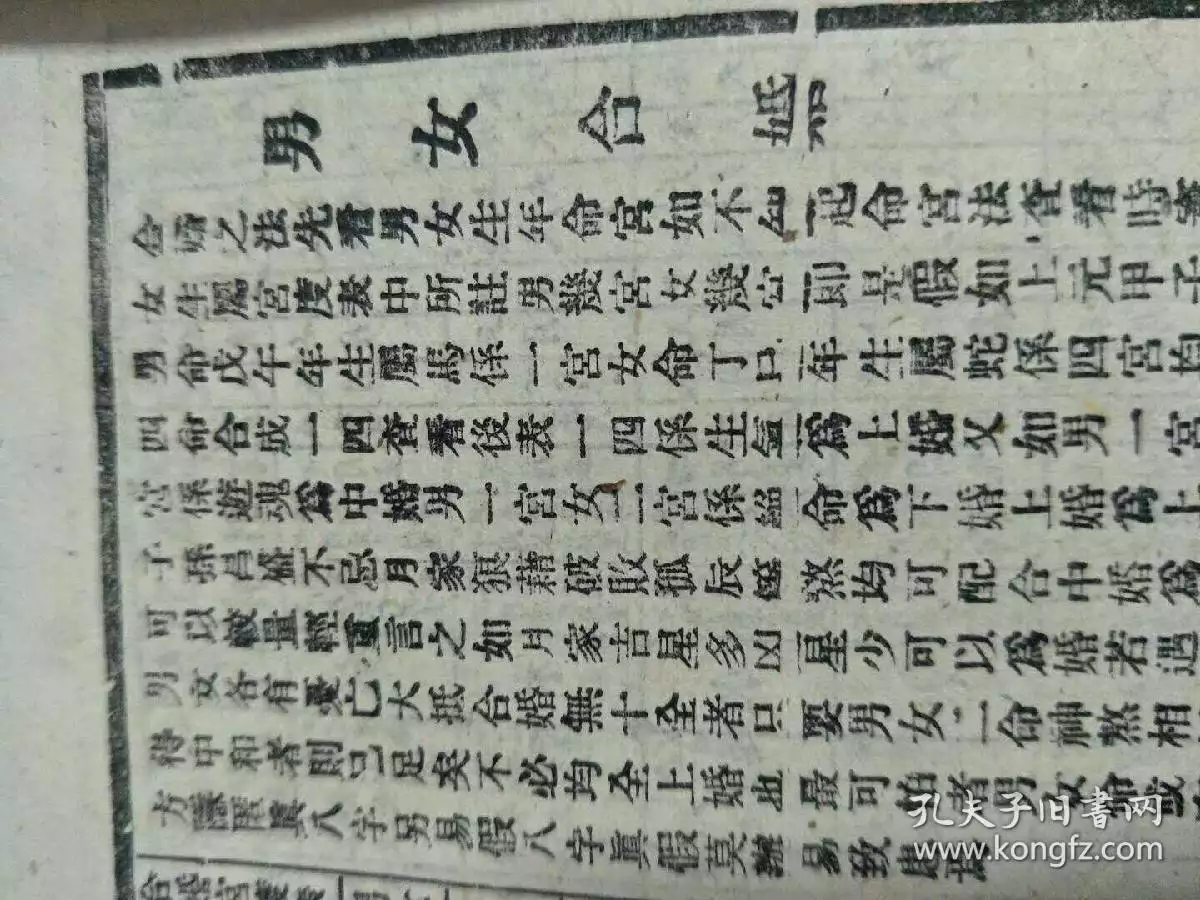 男女合婚
合婚之法先看男女生年命宮如不知起命宮法查看時
女生屬宮度表中所註男幾宮女幾宮即是假如上元甲子
男命戊午年生屬馬係一宮女命丁巳年生屬蛇係四宮均
四命合成一四查看後表一四係生氣爲上婚又如男一宮
宮係遊魂爲中婚男一宮女二宮係絕命爲下婚上婚爲上
子孫昌盛不忌月家狼藉破敗孤辰煞均可配合中婚爲
可以較量輕重言之如月家吉星多凶星少可以爲婚若遇
男女各有憂亡大抵合婚無十全者只要男女二命神煞相
得中和者則已足矣不必均全上婚也最可怕者男女命或
方隱匿真八字另易假八字眞假莫辦易致
孔夫子旧书网
www.kongfz.com